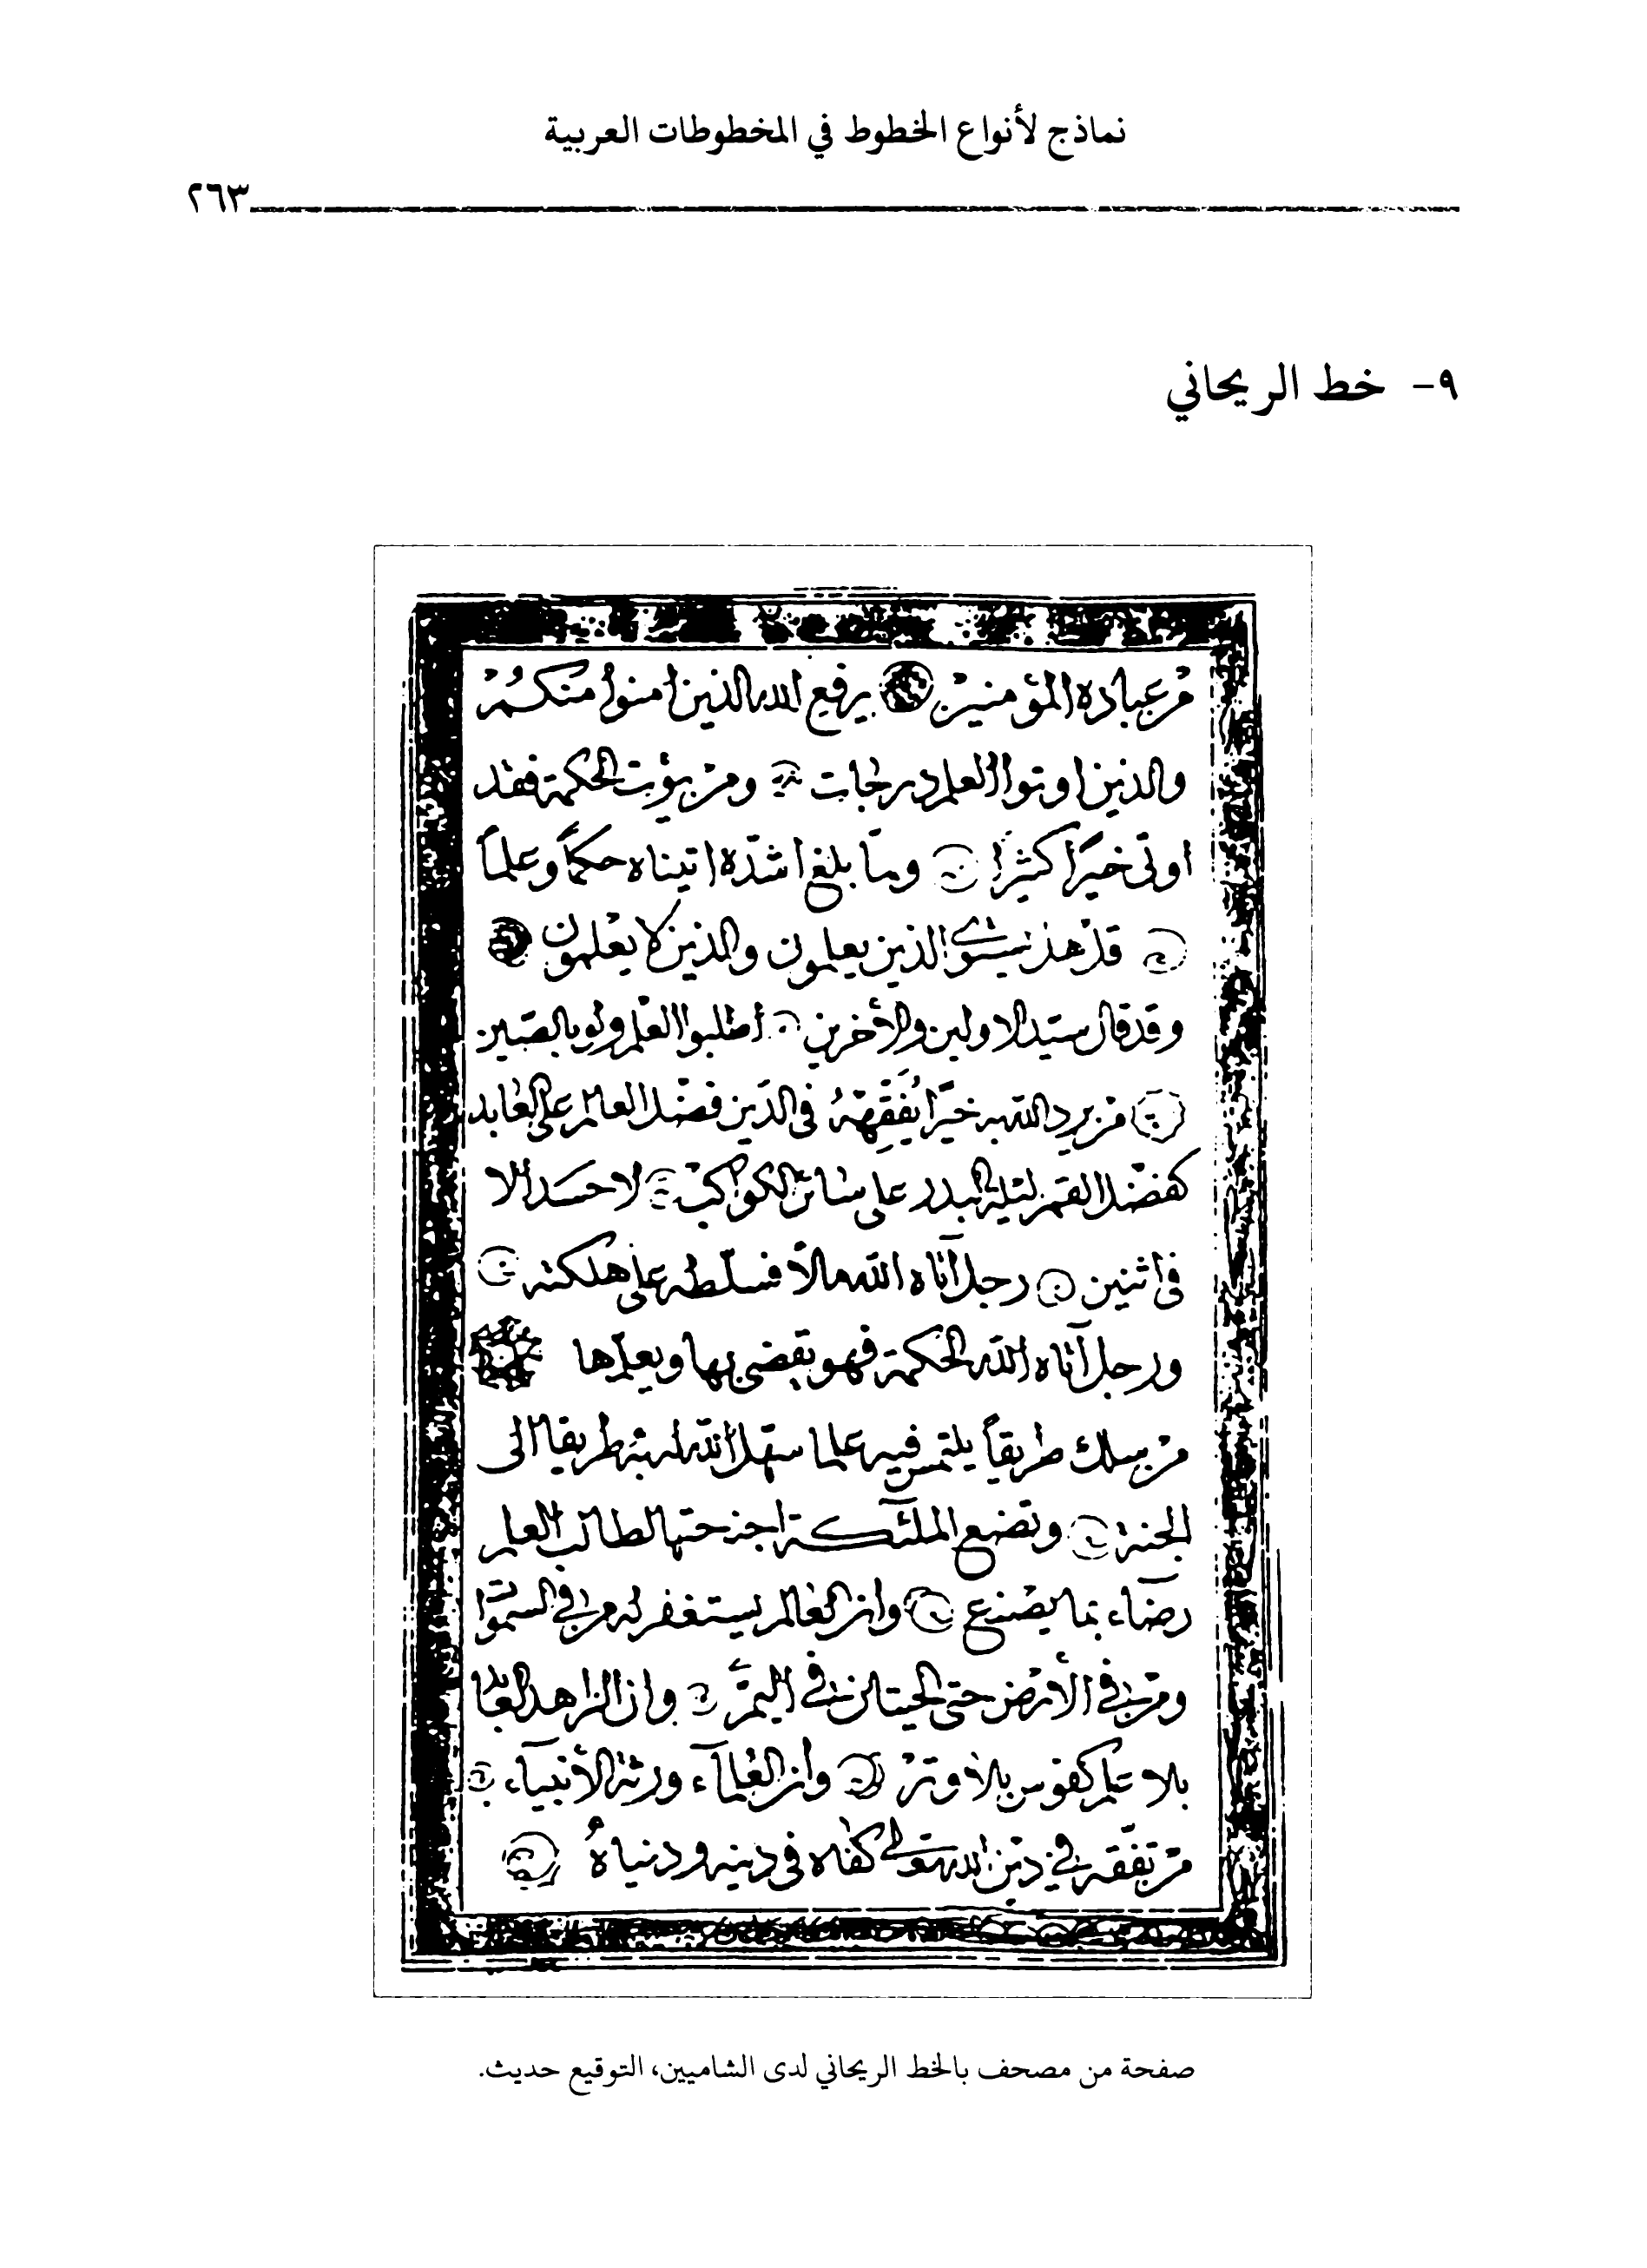 نماذج لأنواع الخطوط في المخطوطات العربية
٢٦٣
٩- خط الريحاني
من عباده المؤمنين يرفع الله الذين امنوا منكم
والذين اوتوا العلم درجات ومن يؤت الحكمة فقد
اوتى خيرًا كثيرًا ولما بلغ اشدّه اتيناه حكمًا وعلمًا
قل هل يستوى الذين يعلمون والذين لا يعلمون
وقد قال سيّد الاولين والأخرين أطلبوا العلم ولو بالصّين
من يرد الله به خيرًا يُفَقِّههُ في الدّين فضل العالم على العابد
كفضل القمر ليلة البدر على سائر الكواكب لا حسد الا
في اثنين رجل آتاه الله مالاً فسلّطه على هلكته
ورجل آتاه الله الحكمة فهو يقضى بها ويعلّمها
من سلك طريقاً يلتمس فيه علما سهّل الله له به طريقا الى
الجنة وتضع الملئكة اجنحتها لطالب العلم
رضآء بما يصنع وان العالم ليستغفر له من في السموات
ومن في الأرض حتى الحيتان في اليمّ وان الزاهد العابد
بلا علم كقوس بلا وتر وأن العلمآء ورثة الأنبيآء
من تفقّه في دين الله تعالى كفاه في دينه ودنياهُ
صفحة من مصحف بالخط الريحاني لدى الشاميين، التوقيع حديث.